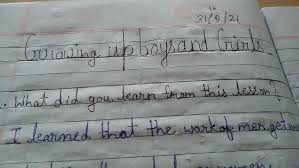 31/8/21
Growing up boys and Girls
. What did you learn from this lesson?
I learned that the work of men get